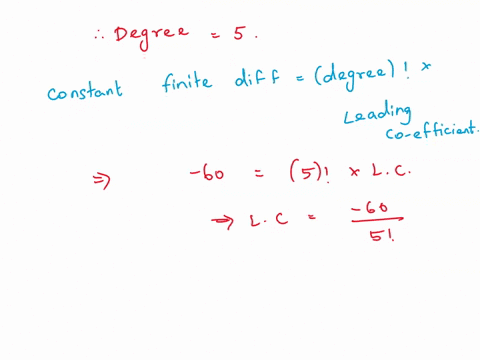 ∴ Degree = 5.
constant finite diff = (degree)! ×
Leading
co-efficient.
⇒ -60 = (5)! × L.C.
→ L.C = -60/5!